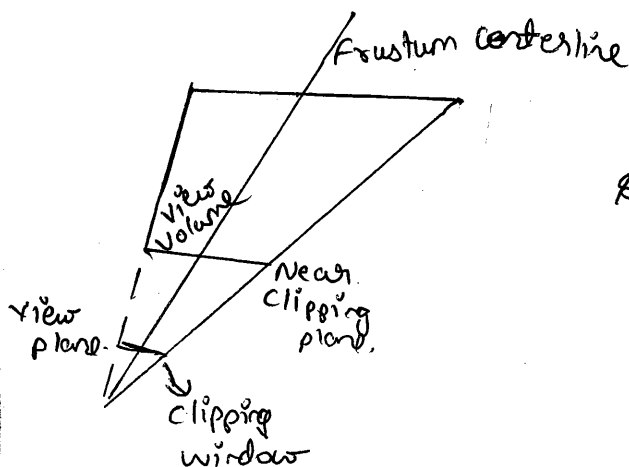 Frustum centerline
View
Volume
Near
Clipping
plane.
View
plane.
Clipping
window